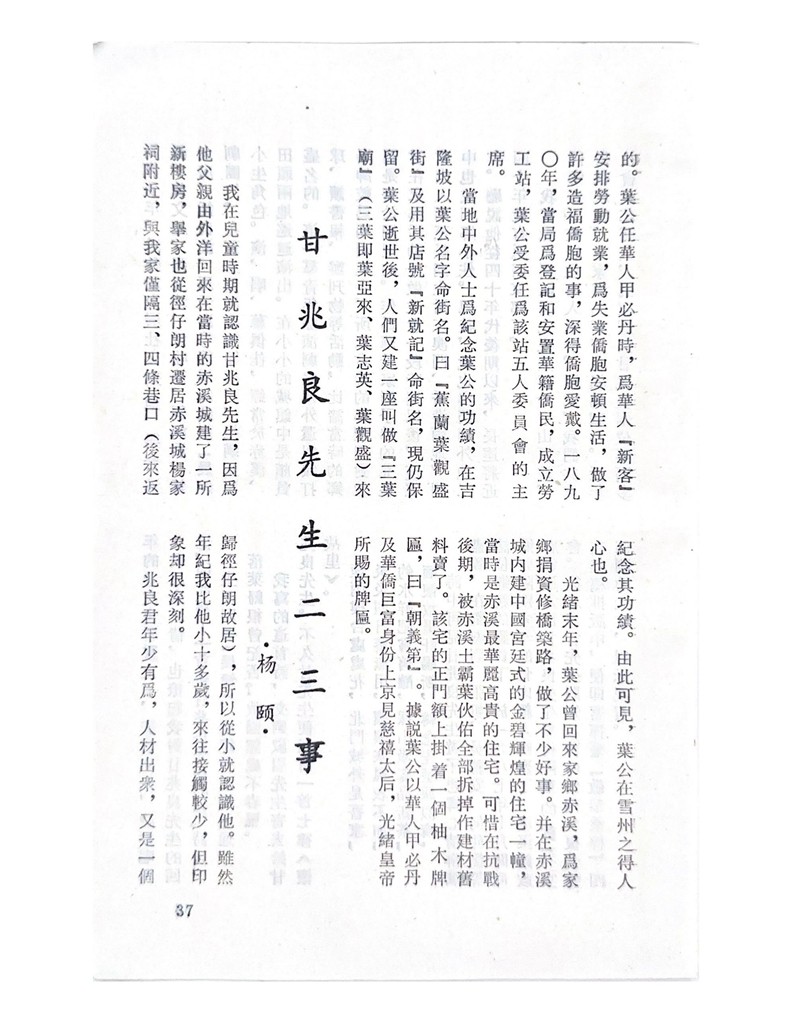 的。葉公任華人甲必丹時，爲華人『新客』
安排勞動就業，爲失業僑胞安頓生活，做了
許多造福僑胞的事，深得僑胞愛戴。一八九
〇年，當局爲登記和安置華籍僑民，成立勞
工站，葉公受委任爲該站五人委員會的主
席。
當地中外人士爲紀念葉公的功績，在吉
隆坡以葉公名字命街名。曰『蕉蘭葉觀盛
街』及用其店號『新就記』命街名，現仍保
留。葉公逝世後，人們又建一座叫做『三葉
廟』（三葉即葉亞來、葉志英、葉觀盛）來
紀念其功績。由此可見，葉公在雪州之得人
心也。
光緒末年，葉公曾回來家鄉赤溪，爲家
鄉捐資修橋築路，做了不少好事。并在赤溪
城内建中國宮廷式的金碧輝煌的住宅一幢，
當時是赤溪最華麗高貴的住宅。可惜在抗戰
後期，被赤溪土霸葉伙佑全部拆掉作建材舊
料賣了。該宅的正門額上掛着一個柚木牌
匾，曰『朝義第』。據説葉公以華人甲必丹
及華僑巨富身份上京見慈禧太后，光緒皇帝
所賜的牌匾。
甘兆良先生二三事
·杨颐·
我在兒童時期就認識甘兆良先生，因爲
他父親由外洋回來在當時的赤溪城建了一所
新樓房，舉家也從徑仔朗村遷居赤溪城楊家
祠附近，與我家僅隔三、四條巷口（後來返
歸徑仔朗故居），所以從小就認識他。雖然
年紀我比他小十多歲，來往接觸較少，但印
象却很深刻。
兆良君年少有爲，人材出衆，又是一個
37